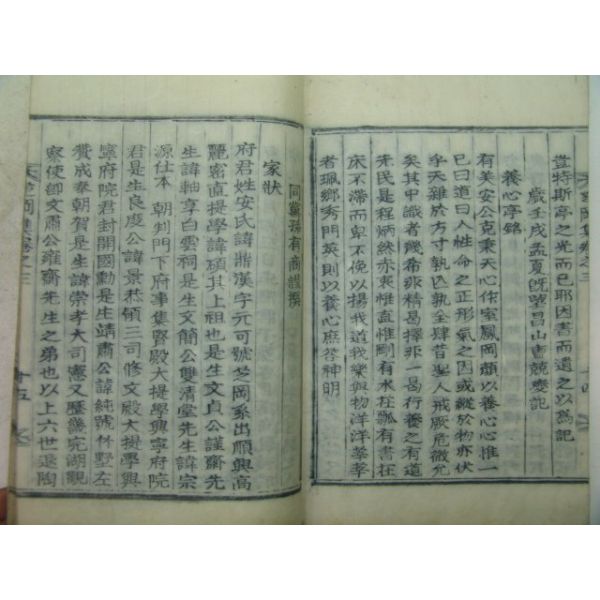 豈特斯亭之光而已耶因書而遺之以爲記
歲壬戌孟夏旣望昌山曺兢燮記
養心亭銘
有美安公克秉天心作室鳳岡顔以養心心惟一
已曰道曰人性命之正形氣之因或縱於物亦伏
乎天雖於方寸孰匹孰全肆昔聖人戒厥危微允
矣其中識者幾希非精曷擇非一曷行養之有道
先民是程炳然赤衷惟直惟剛有水在瓢有書在
床不滯而卑不俛以揚我道我樂與物洋洋莘莘
者珮鄕秀門英則以養心庶答神明
芝岡集卷之三
十四
同黨 有商謹撰
家狀
府君姓安氏諱鼎漢字元可號芝岡系出順興高
麗密直提學諱碩其上祖也是生文貞公謹齋先
生諱軸享白雲祠是生文簡公雙淸堂先生諱宗
源仕本 朝判門下府事集賢殿大提學興寧府院
君是生良度公諱景恭領三司修文殿大提學興
寧府院君封開國勳是生靖肅公諱純號休墅左
贊成奉朝賀是生諱崇孝大司憲又歷畿完湖觀
察使卽文肅公雍齋先生之弟也以上六世退陶
芝岡集卷之三
十五